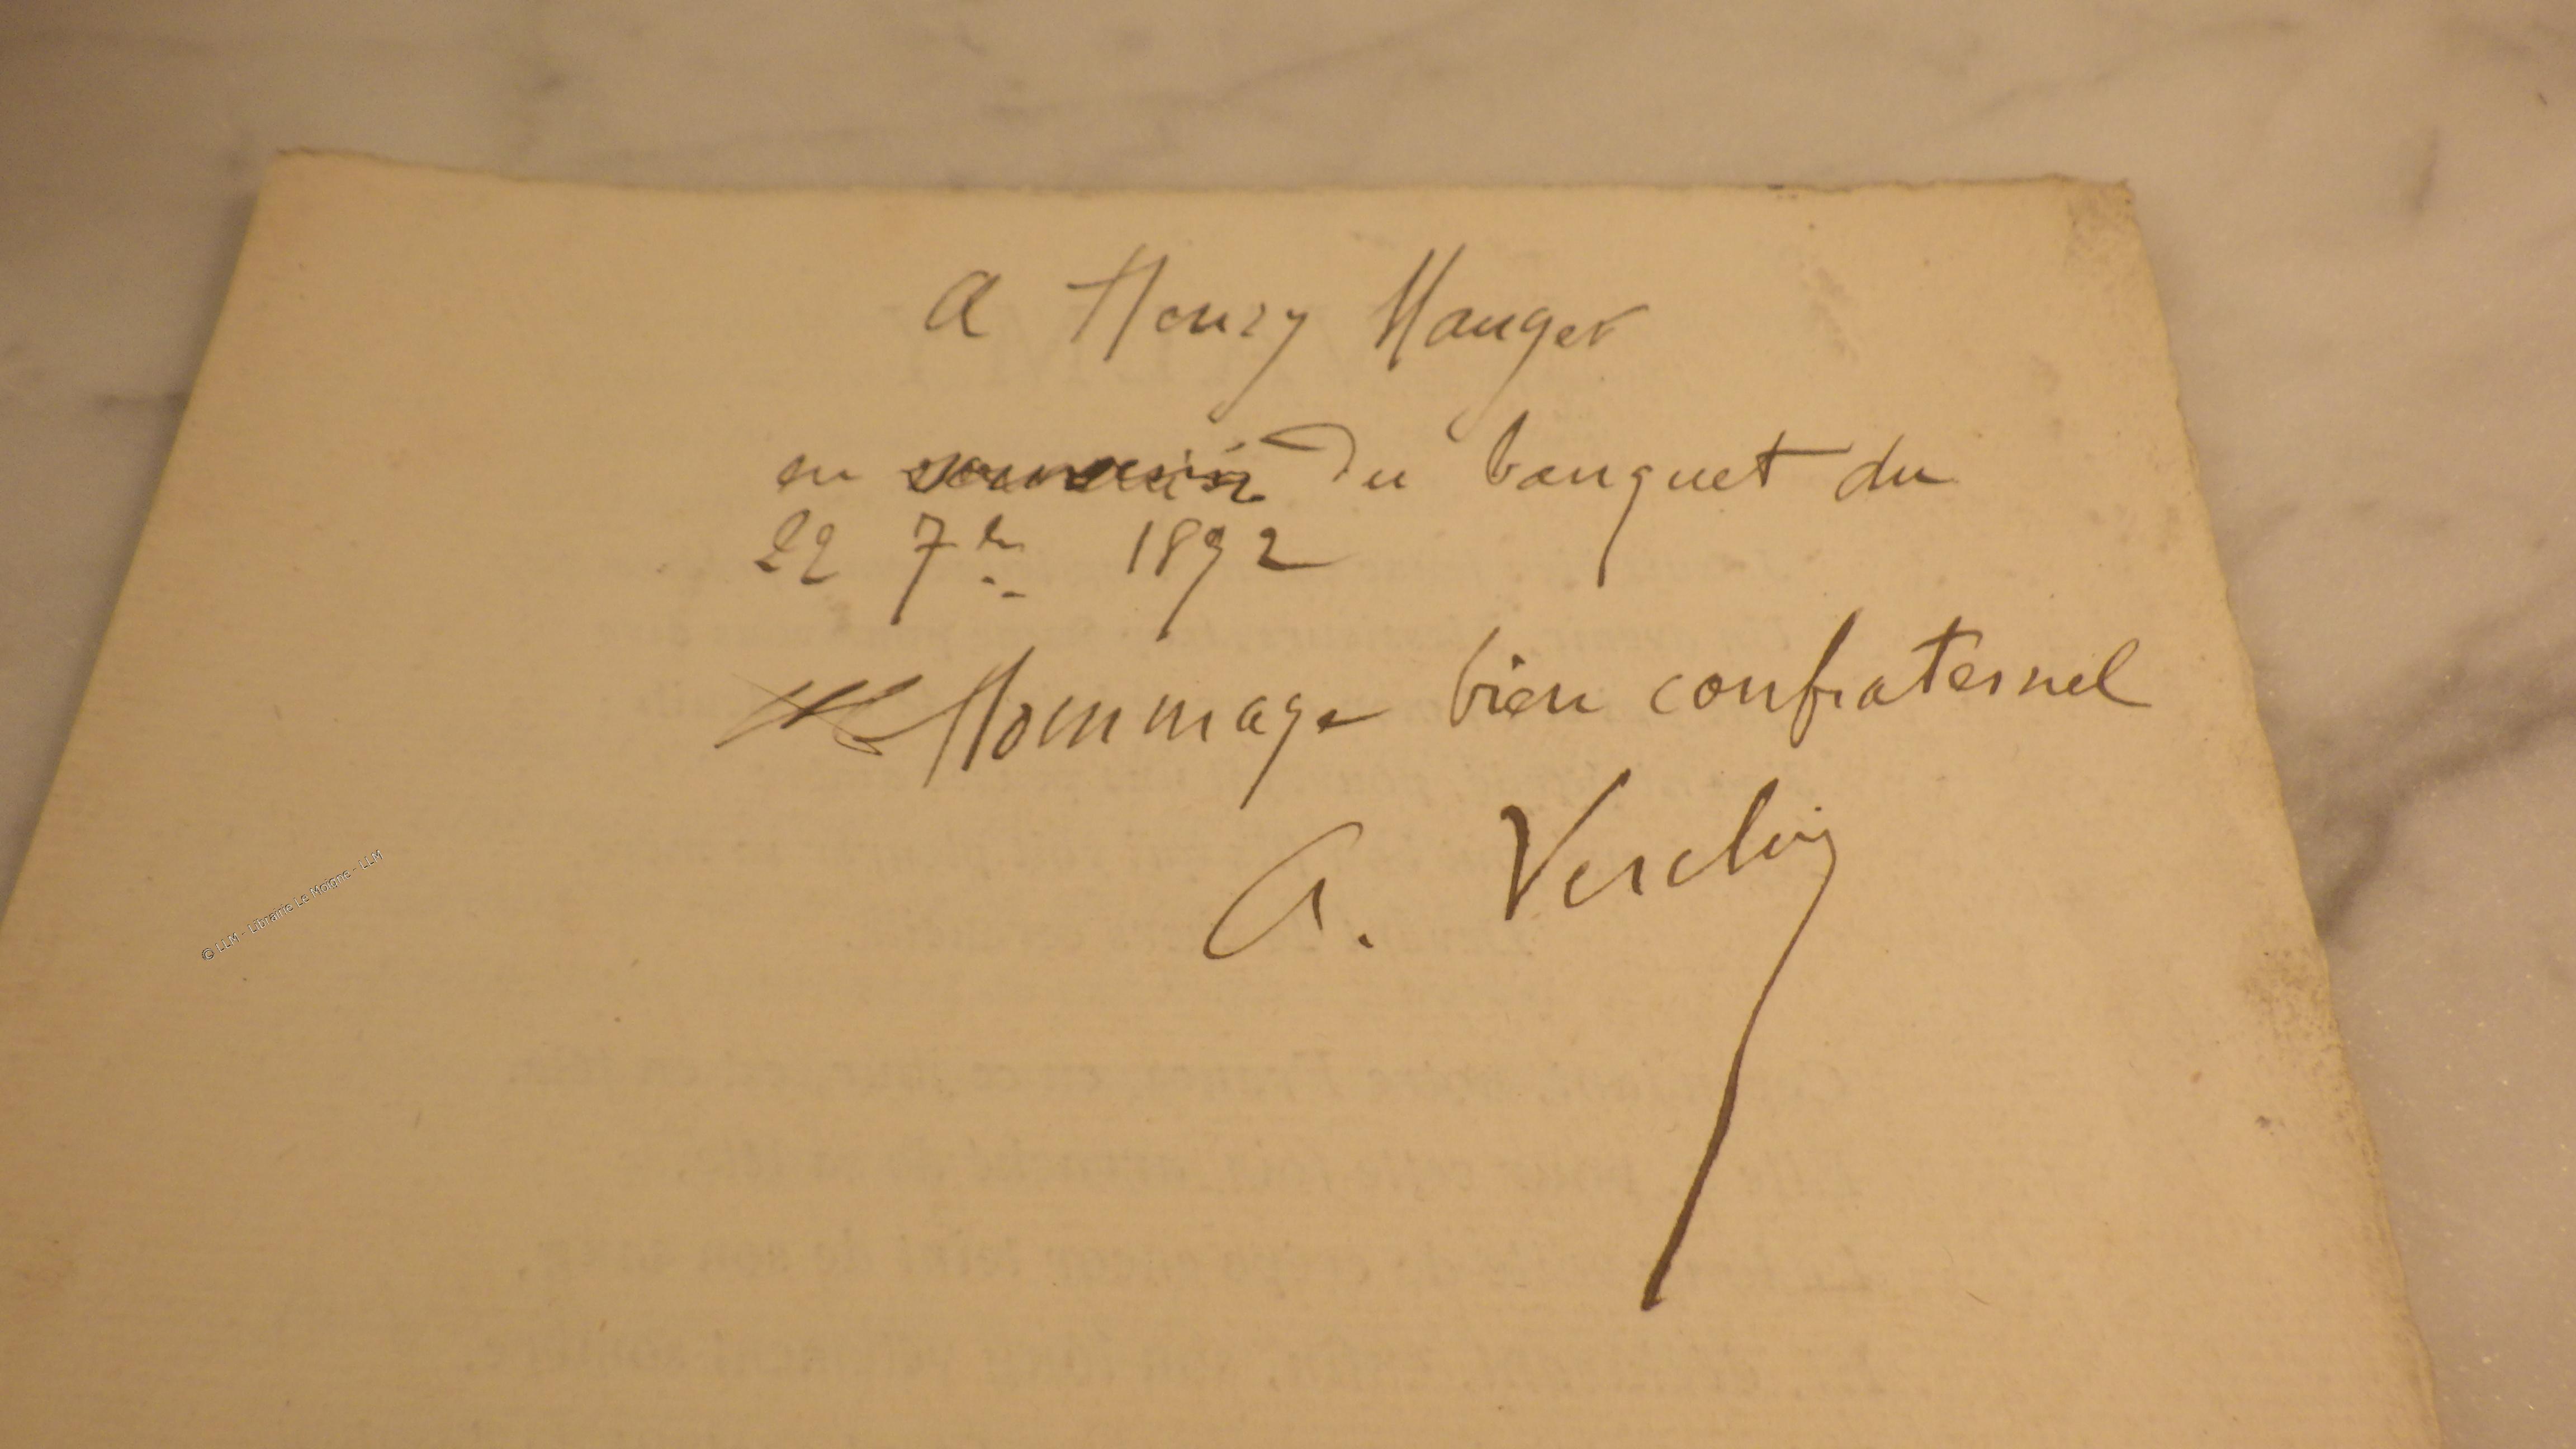 A Henry Mauger
en souvenir du banquet du
22 7bre 1892
Hommage bien confraternel
A. Verchin
© LLM - Librairie Le Moigne - LLM